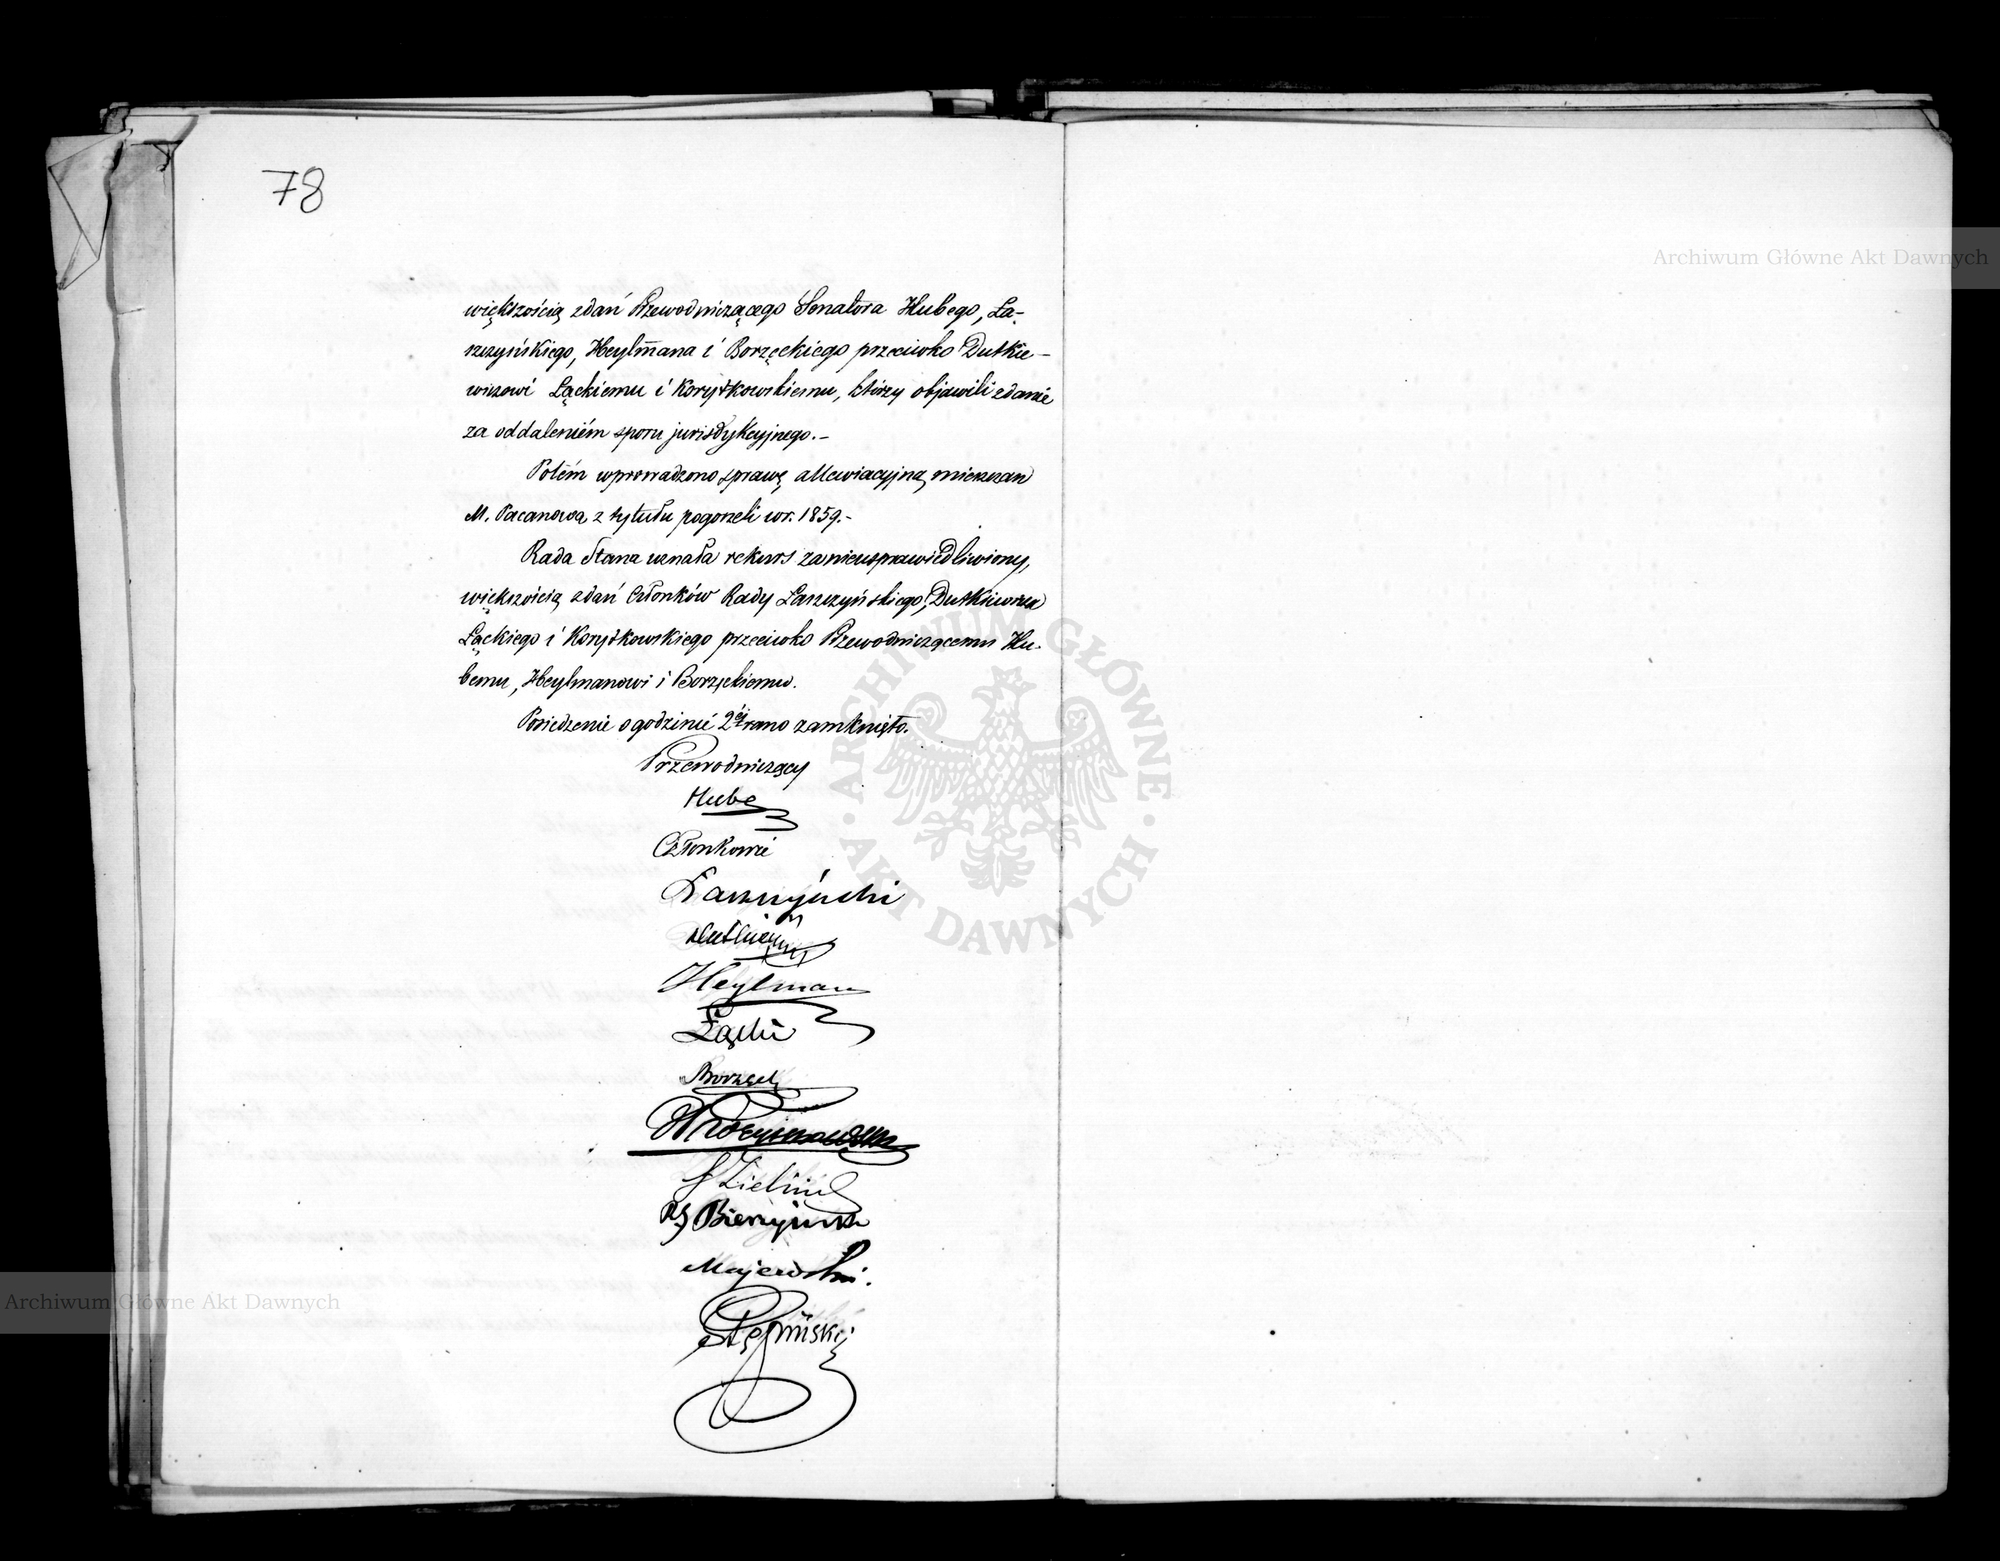 78
większością zdań Przewodniczącego Senatora Hubego, Ła-
szczyńskiego, Heylmana i Borzęckiego przeciwko Dutkie-
wiczowi Łąckiemu i Korytkowskiemu, którzy objawili zdanie
za oddaleniem sporu jurisdykcyjnego.-
Potém wprowadzono sprawę allewiacyjną mieszczan
M. Pacanowa z tytułu pogorzeli w r. 1859.-
Rada Stanu uznała rekurs za nieusprawiedliwiony,
większością zdań Członków Rady Łaszczyńskiego, Dutkiewicza
Łąckiego i Korytkowskiego przeciwko Przewodniczącemu Hu-
bemu, Heylmanowi i Borzęckiemu.
Posiedzenie o godzinie 2éj rano zamknięto.
Przewodniczący
Hube
Członkowie
Łaszczyński
Heylman
Łącki
Borzęcki
Zieliński
Bierzyński
Majewski.
Stępiński
Archiwum Główne Akt Dawnych
Archiwum Główne Akt Dawnych
ARCHIWUM GŁÓWNE
AKT DAWNYCH